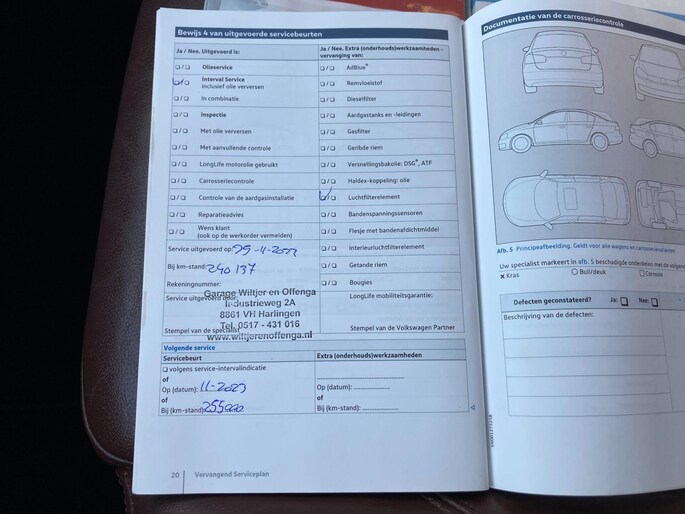 Bewijs 4 van uitgevoerde servicebeurten
Ja / Nee. Uitgevoerd is:
Ja / Nee. Extra (onderhouds)werkzaamheden - vervanging van:
Olieservice
AdBlue®
Interval Service
inclusief olie verversen
Remvloeistof
In combinatie
Dieselfilter
Inspectie
Aardgastanks en -leidingen
Met olie verversen
Gasfilter
Met aanvullende controle
Geribde riem
LongLife motorolie gebruikt
Versnellingsbakolie: DSG®, ATF
Carrosseriecontrole
Haldex-koppeling: olie
Controle van de aardgasinstallatie
Luchtfilterelement
Reparatieadvies
Bandenspanningssensoren
Wens klant
(ook op de werkorder vermelden)
Flesje met bandenafdichtmiddel
Service uitgevoerd op:
Interieurluchtfilterelement
Bij km-stand: 240 137
Getande riem
Rekeningnummer:
Bougies
Service uitgevoerd door:
LongLife mobiliteitsgarantie:
Garage Wiltjer en Offenga
Industrieweg 2A
8861 VH Harlingen
Tel. 0517 - 431 016
www.wiltjerenoffenga.nl
Stempel van de specialist
Stempel van de Volkswagen Partner
Volgende service
Servicebeurt
Extra (onderhouds)werkzaamheden
volgens service-intervalindicatie
of
Op (datum): 11-2023
of
Bij (km-stand): 255000
of
Op (datum):
of
Bij (km-stand):
20 Vervangend Serviceplan
Documentatie van de carrosseriecontrole
Afb. 5 Principeafbeelding. Geldt voor alle wagens en
Uw specialist markeert in afb. 5 beschadigde onderdelen met de
x Kras
Buil/deuk
Corrosie
Defecten geconstateerd?
Ja:
Nee:
Beschrijving van de defecten: